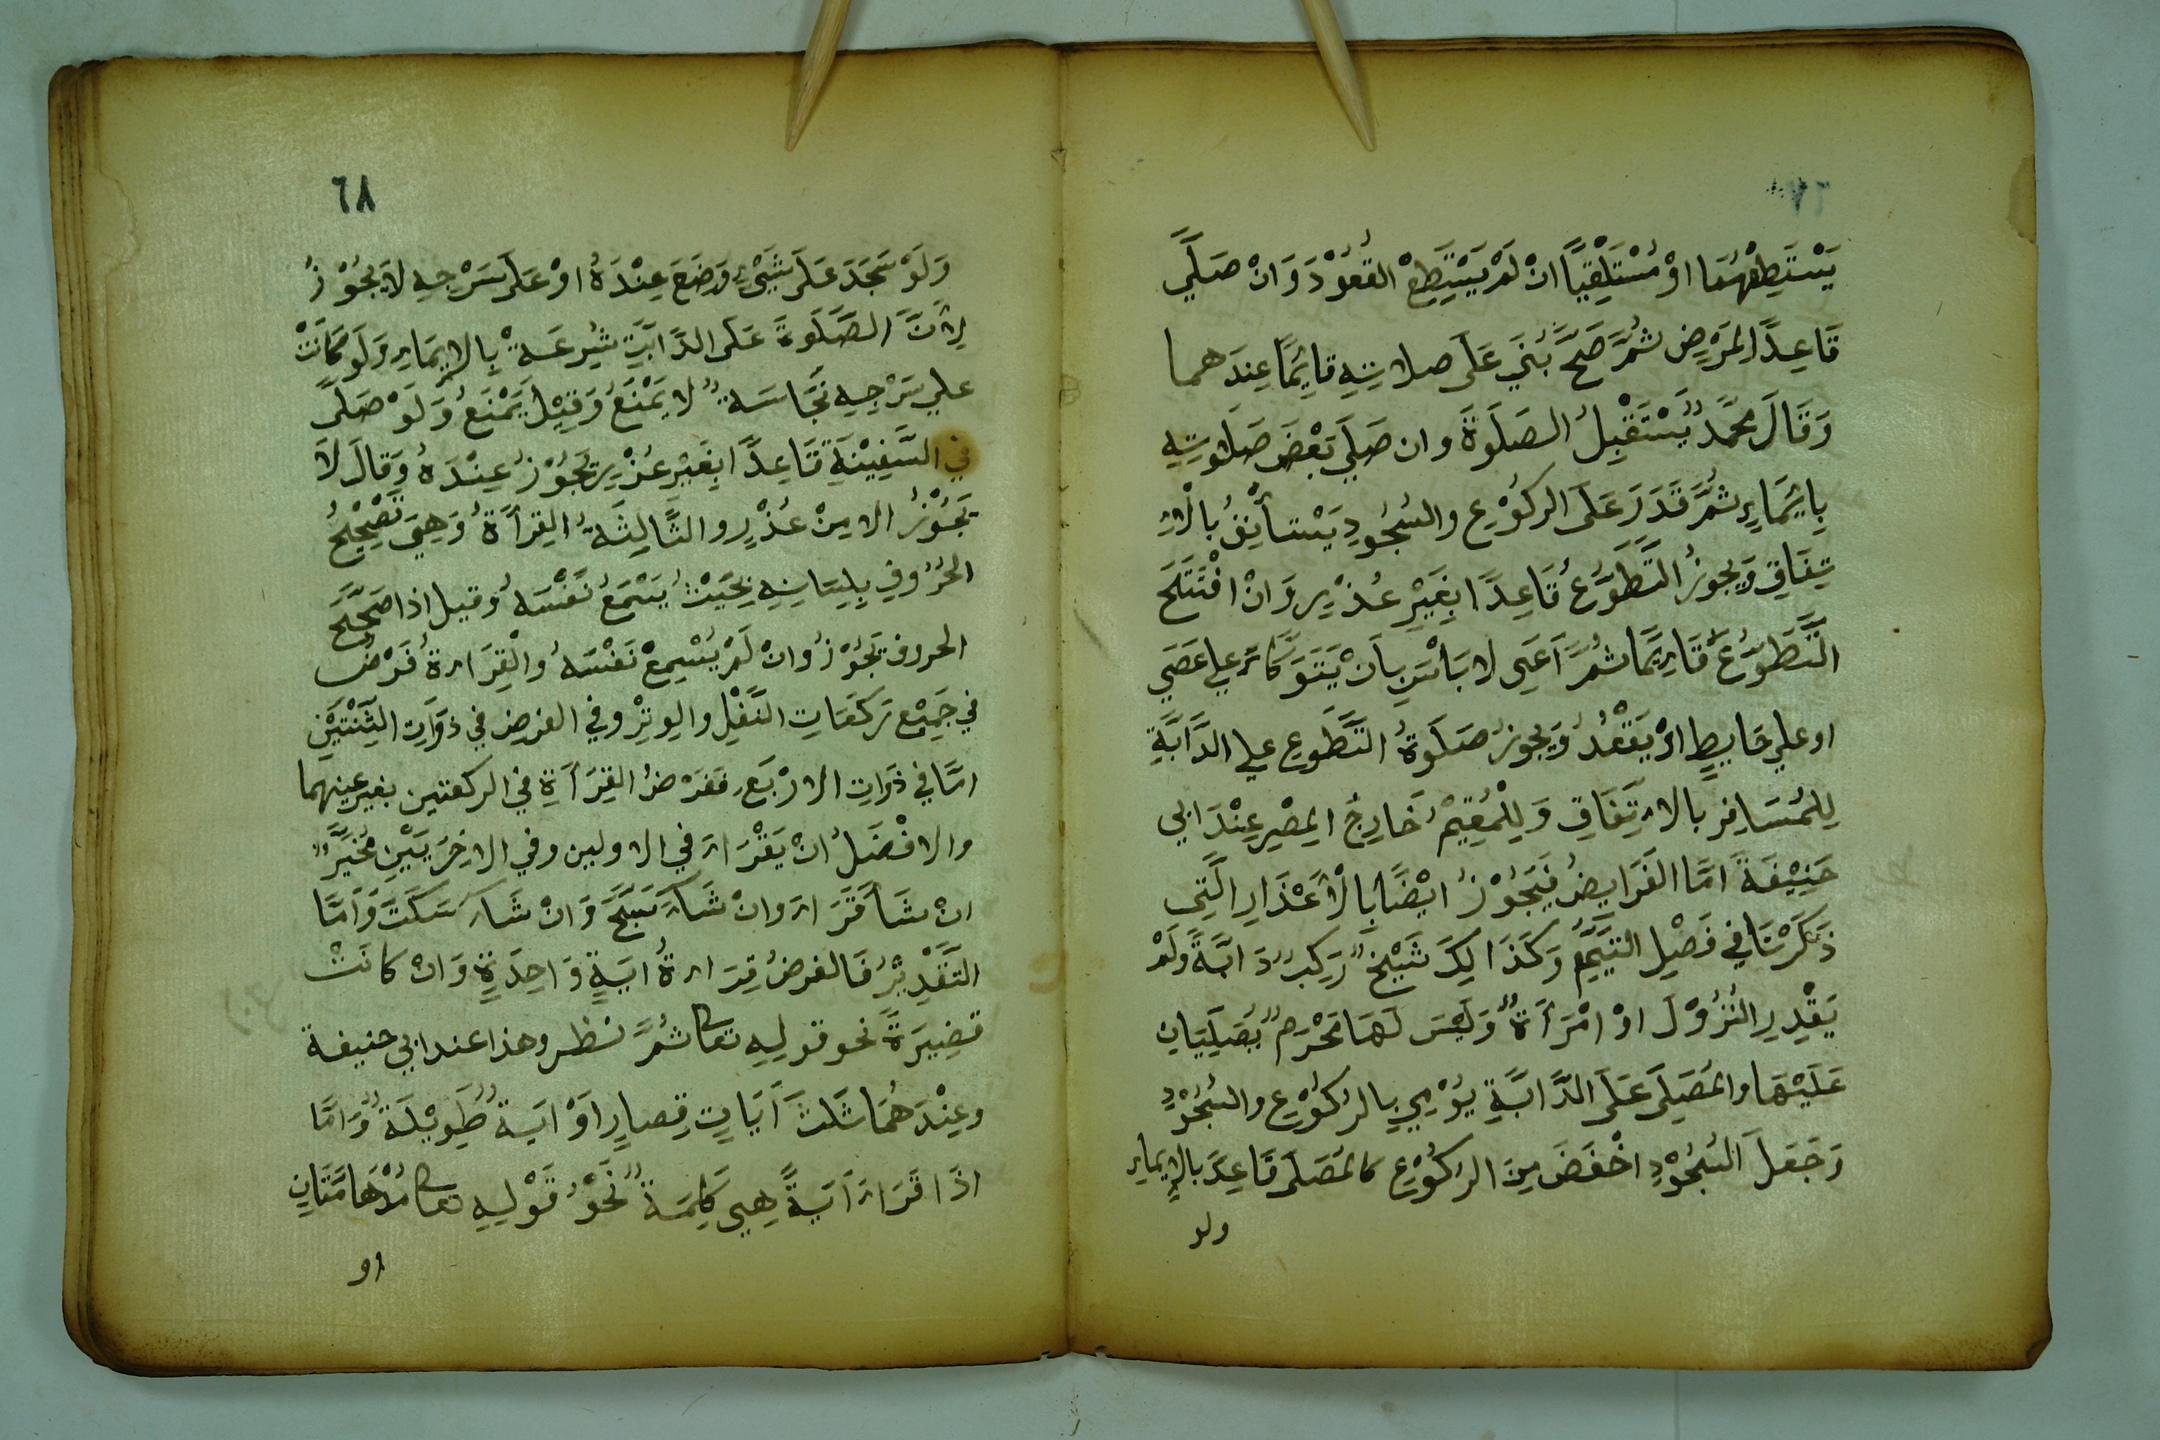 يَسْتَطِعْهُمَا اَوْ مُسْتَلِقْيًا اِنْ لَمْ يَسْتَطِعْ القُعُوْدَ وَانْ صَلَّي
قَاعِدًا المَرِيض ثُمَّ صَحَّ بُنَي عَلَى صلاتِهِ قائِمًا عِندَهما
وَقَالَ مُحَمَّدٌ يَسْتَقْبِلُ الصَلَوةَ وان صَلَّي بَعْضَ صَلَوتِهِ
بِايمَاءٍ ثُمَّ قَدَرَ عَلَى الركُوْعِ والسُجُودِ يَسْتَأْنِفُ بالْاِ
تِفَاقِ وَيجوزُ التَّطَوُّعُ قَاعِدًا بِغَيْرِ عُذْرٍ وَانْ افْتَتَحَ
التَّطَوُّعَ قَائِمًا ثُمَّ اَعْيَى لا بَاْسَ بِاَنْ يَتَوَكَّاءَ علي عَصَي
او علي حَايِطٍ اوْ يَقْعُدُ وَيجوزُ صَلَوةُ التَّطَوعِ علي الدَّابَّةِ
لِلمُسَافِرِ بالاتِّفَاقِ وَلِلْمُقِيْمِ خَارِجُ المِصْرِ عِنْدَ ابي
حَنِيْفَةَ امَّا الفَرَايِضُ فَيَجُوْزُ ايْضًا بِالْاَعْذَارِ الَّتِى
ذَكَرْنَا فِي فَصْلِ التَّيَمُّمِ وَكَذَالِكَ شَيْخٌ رَكِبَ دَابَّةً وَلَمْ
يَقْدِرِ النُزُوْلَ اوْ امْرَأَةٌ وَلَيْسَ لَهَا مَحْرَمٌ يُصَلِّيَانِ
عَلَيْهَا والمُصَلِّى عَلَى الدَّابَّةِ يُوْمِي بِالرُكُوْعِ والسُجُوْدِ
وَجَعَلَ السُجُوْدِ اَخْفَضَ مِنَ الرُكُوْعِ كالمُصَلِّى قَاعِدَ بالاِيماءِ
ولو
٦٨
وَلَوْ سَجَدَ عَلَى شَيْءٍ وَضَعَ عِنْدَهُ اوْ عَلَى سَرْجِهِ لاَ يَجُوْزُ
لِاَنَّ الصَّلَوةَ عَلَى الدَّابَّةِ شُرِعَةْ بِالاِيمَاءِ وَلَو كَانَتْ
علي سَرْجِهِ نَجَاسَةٌ لا يَمْنَعُ وَقِيْلَ يَمْنَعُ وَلَوْ صَلَّى
في السَّفِيْنَةِ قَاعِدًا بِغَيْرِ عُذْرٍ يَجُوْزُ عِنْدَهُ وَقالَ لا
يَجُوْزُ الا مِنْ عُذْرٍ والثَّالِثَةُ القِرأَةُ وَهِيَ تَصْحِيْحُ
الحُرُوفِ بِلِسَانِهِ بِحَيْثُ يَسْمَعُ نَفْسَهُ وقيل اذا صَحَّحَ
الحروف يَجُوْزُ وانْ لَمْ يُسْمِعْ نَفْسَهُ والْقِرَاءةُ فَرْضٌ
في جَمِيْعِ رَكعَاتِ النَّفْلِ والوِتْرِ وفي الفرض في ذوَاتِ الثِنْتَيْنِ
امَّا في ذَوَاتِ الارْبَعِ فَفَرْضُ القِرَأَةِ في الركعتين بغير عينهما
والافْضَلُ انْ يَقْرَاءَ في الاولين وفي الاخِرَيَيْنِ مُخَيَّرٌ
انْ شَأَ قَرَاءَ وانْ شَاءَ سَبَّحَ وَانْ شَاءَ سَكَتَ وَاَمَّا
التَقْدِيْرُ فَالفرضُ قِرَاءةُ ايَةٍ وَاحِدَةٍ وَانْ كانَتْ
قصِيرَةً نحو قولِهِ تعا ثُمَّ نظر وهذا عند ابي حنيفة
وعِنْدَهُمَا ثَلَثَ اَيَاتٍ قِصارٍ اَوْ ايَةٌ طَوِيْلَةٌ وَامَّا
اذَا قَرَاءَ اَيَةً هِيَ كَلِمَةٌ نَحْوُ قَوْلِهِ تعا مُدْهَامَّتَانِ
او